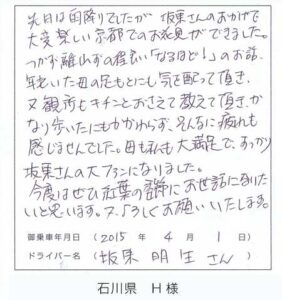 先日は雨降りでしたが 坂東さんのおかげで
大変楽しい京都でのお花見ができました。
つかず離れずの程良い「なるほど!」のお話、
年老いた母の足もとにも気を配って頂き、
又観所もキチンとおさえて教えて頂き、か
なり歩いたにもかかわらず、そんなに疲れも
感じませんでした。母も私も大満足で、すっかり
坂東さんの大ファンになりました。
今度はぜひ紅葉の季節にお世話になりた
いと思います。又、よろしくお願いいたします。
御乗車年月日 ( 2015 年 4 月 1 日)
ドライバー名 ( 坂東 明生 さん )
石川県 H 様